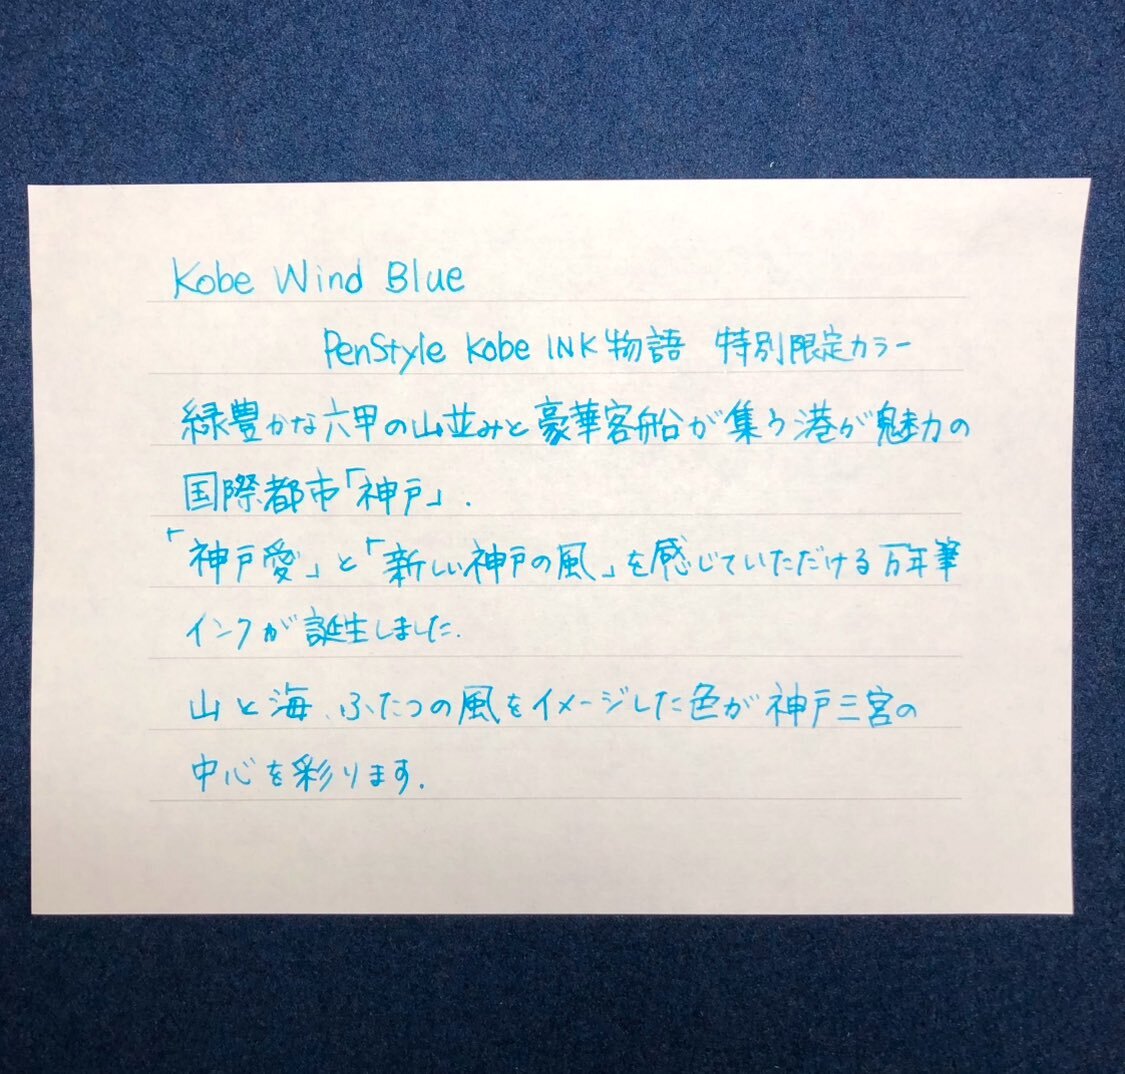 Kobe Wind Blue
PenStyle Kobe INK物語 特別限定カラー
緑豊かな六甲の山並みと豪華客船が集う港が魅力の
国際都市「神戸」.
「神戸愛」と「新しい神戸の風」を感じていただける万年筆
インクが誕生しました.
山と海、ふたつの風をイメージした色が神戸三宮の
中心を彩ります.